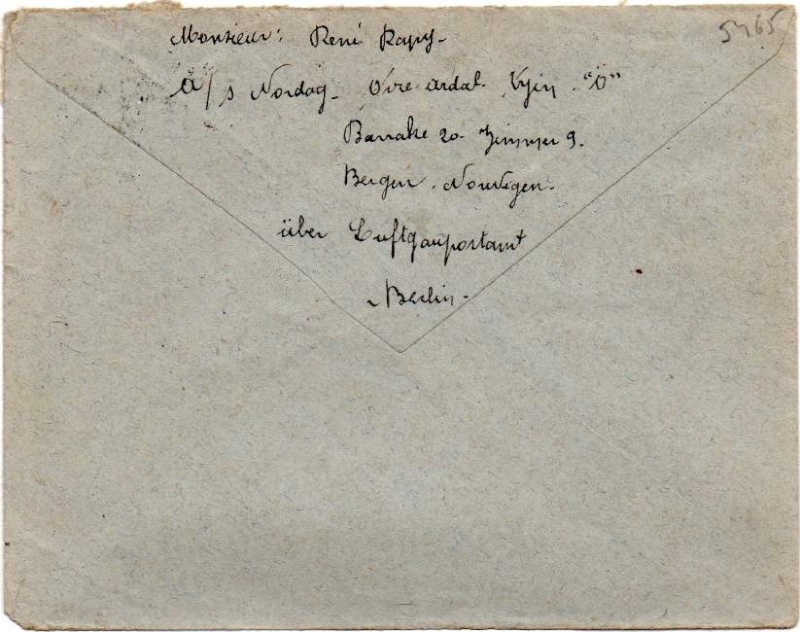 5265
Monsieur: René Rapy-
A/s Nordag- Ovre ardal. Tyin. "O"
Barrake 20- Zimmer 9.
Bergen. Norwegen.
über Luftgaupostamt
Berlin-